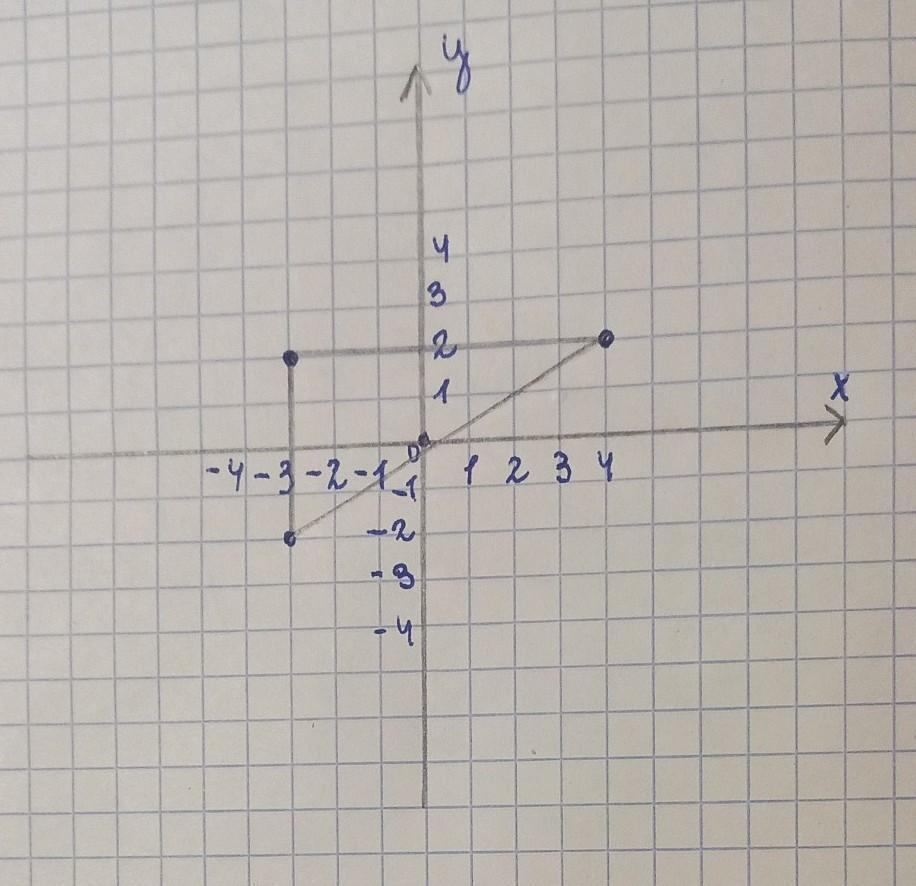 y
4
3
2
1
x
0
-4 -3 -2 -1 1 2 3 4
-1
-2
-3
-4